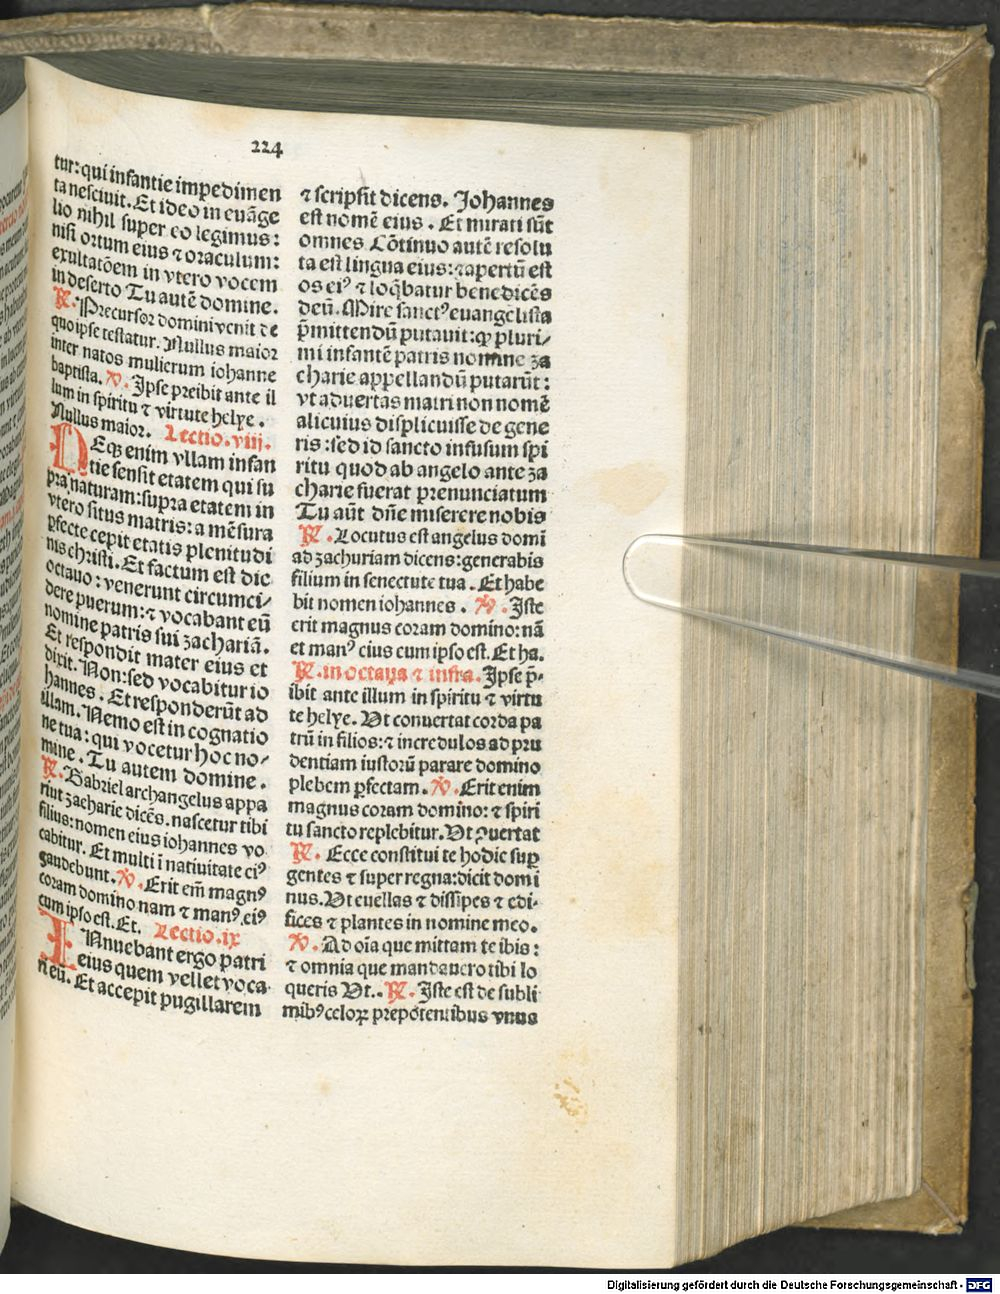 224
tur: qui infantie impedimen
ta nesciuit. Et ideo in euāge
lio nihil super eo legimus:
nisi ortum eius ⁊ oraculum:
exultatōem in vtero vocem
in deserto Tu autē domine.
℟. Precursor domini venit de
quo ipse testatur. Nullus maior
inter natos mulierum iohanne
baptista. ℣. Ipse preibit ante il
lum in spiritu ⁊ virtute helye.
Nullus maior. Lectio.viij.
NEqꝫ enim vllam infan
tie sensit etatem qui su
pra naturam: supra etatem in
vtero situs matris: a mēsura
ꝑfecte cepit etatis plenitudi
nis christi. Et factum est die
octauo: venerunt circumci/
dere puerum: ⁊ vocabant eū
nomine patris sui zachariā.
Et respondit mater eius et
dixit. Non: sed vocabitur io
hannes. Et responderūt ad
illam. Nemo est in cognatio
ne tua: qui vocetur hoc no/
mine. Tu autem domine.
℟. Gabriel archangelus appa
ruit zacharie dicēs. nascetur tibi
filius: nomen eius iohannes vo
cabitur. Et multi ī natiuitate eiꝰ
gaudebunt. ℣. Erit em̄ magnꝰ
coram domino nam ⁊ manꝰ eiꝰ
cum ipso est. Et. Lectio.ix
INnuebant ergo patri
eius quem vellet voca
ri eū. Et accepit pugillarem
⁊ scripsit dicens. Johannes
est nomē eius. Et mirati sūt
omnes Cōtinuo autē resolu
ta est lingua eius: ⁊ apertū est
os eiꝰ ⁊ loq̄batur benedicēs
deū. Mire sanctꝰ euangelista
p̄mittendū putauit: ꝙ pluri/
mi infantē patris nomine za
charie appellandū putarūt:
vt aduertas matri non nomē
alicuius displicuisse de gene
ris: sed id sancto infusum spi
ritu quod ab angelo ante za
charie fuerat prenunciatum
Tu aūt dn̄e miserere nobis
℟. Locutus est angelus domi
ad zachariam dicens: generabis
filium in senectute tua. Et habe
bit nomen iohannes. ℣. Iste
erit magnus coram domino: nā
et manꝰ eius cum ipso est. Et ha.
℟. in octaua ⁊ infra. Ipse p̄-
ibit ante illum in spiritu ⁊ virtu
te helye. Vt conuertat corda pa
trū in filios: ⁊ incredulos ad pru
dentiam iustorū parare domino
plebem ꝑfectam. ℣. Erit enim
magnus coram domino: ⁊ spiri
tu sancto replebitur. Vt ꝯuertat
℟. Ecce constitui te hodie suꝑ
gentes ⁊ super regna: dicit domi
nus. Vt euellas ⁊ dissipes ⁊ edi-
fices ⁊ plantes in nomine meo.
℣. Ad oīa que mittam te ibis:
⁊ omnia que mandauero tibi lo
queris Vt.. ℟. Iste est de subli
mibꝰ celoꝝ prepotentibus vnus
Digitalisierung gefördert durch die Deutsche Forschungsgemeinschaft - DFG